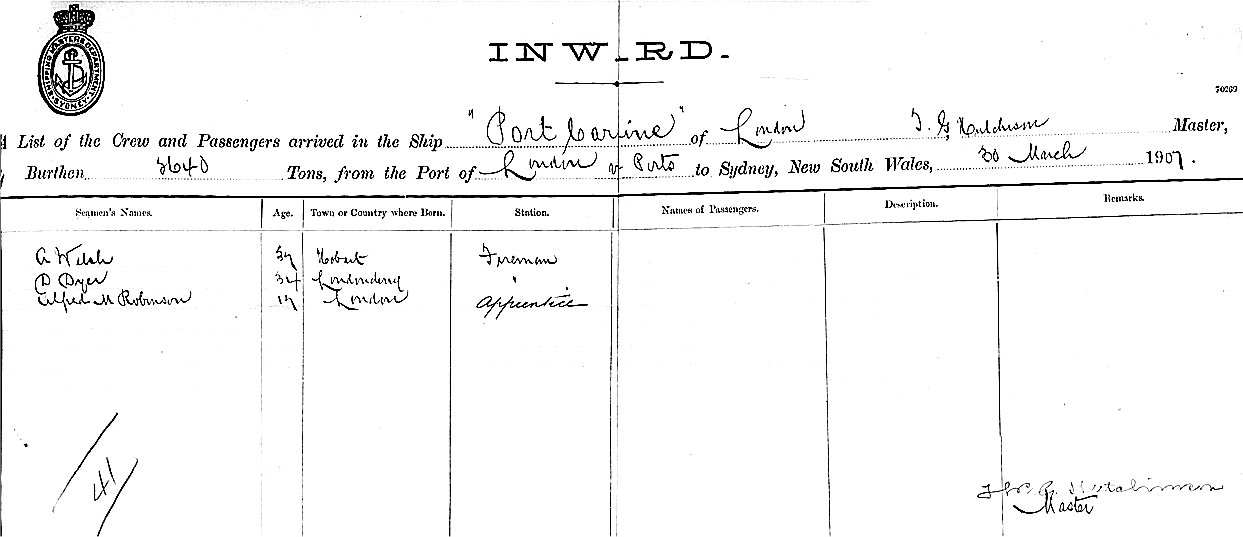 SHIPPING MASTERS DEPARTMENT SYDNEY
INWARD.
70269
A List of the Crew and Passengers arrived in the Ship "Port Carine" of London T. G. Hutchison Master,
Burthen 3640 Tons, from the Port of London & Ports to Sydney, New South Wales, 30 March 1907.
Seamen's Names. Age. Town or Country where Born. Station. Names of Passengers. Description. Remarks.
A Welsh 37 Hobart Fireman
D Dyer 34 Londonderry "
Alfred M Robinson 17 London Apprentice
41
Hutchinson
Master